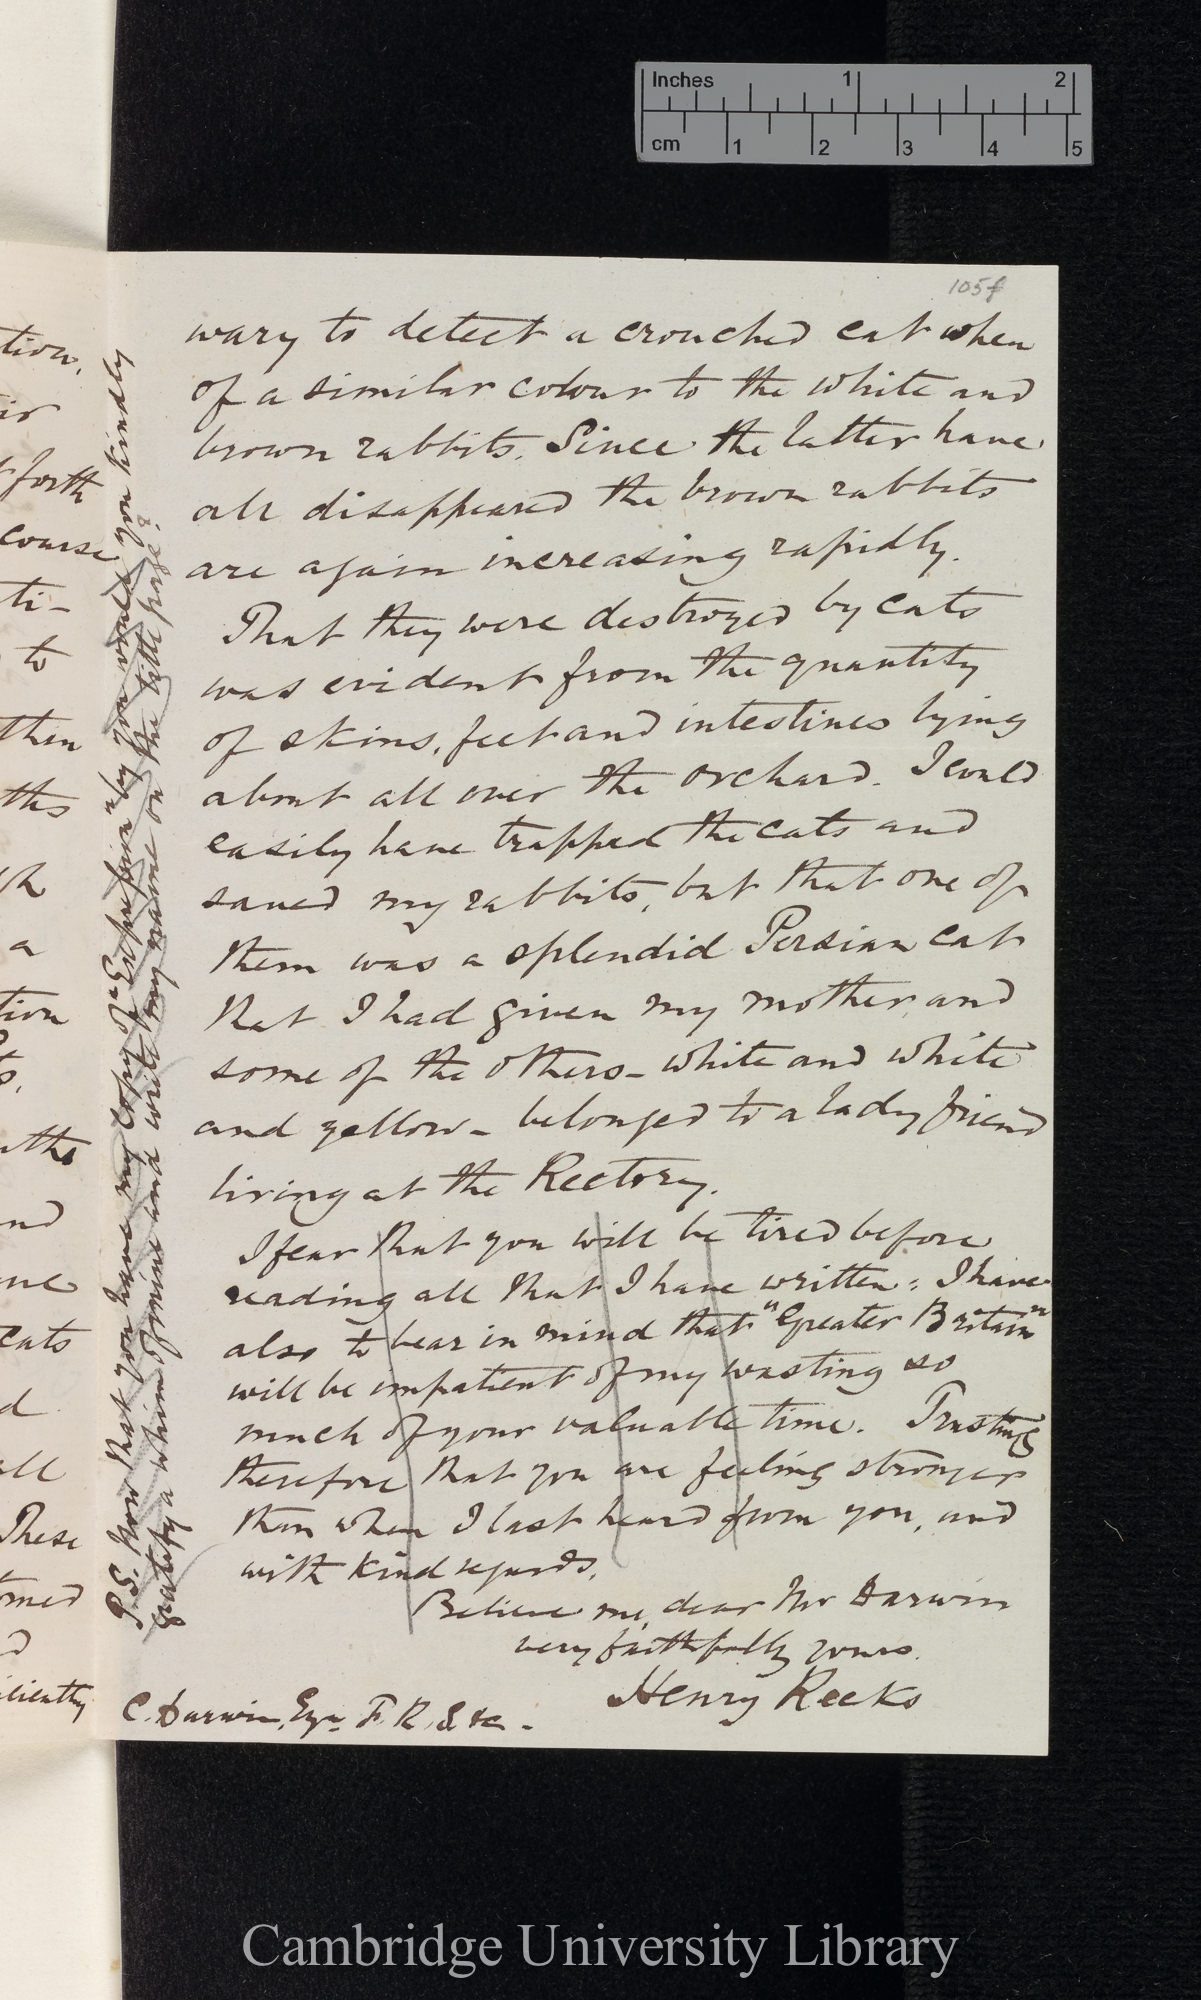 Inches 1 2
cm 1 2 3 4 5
105f
wary to detect a crouched cat when
of a similar colour to the white and
brown rabbits. Since the latter have
all disappeared the brown rabbits
are again increasing rapidly.
That they were destroyed by cats
was evident from the quantity
of skins, feet and intestines lying
about all over the orchard. I could
easily have trapped the cats and
saved my rabbits, but that one of
them was a splendid Persian cat
that I had given my mother, and
some of the others – white and white
and yellow – belonged to a lady friend
living at the Rectory.
I fear that you will be tired before
reading all that I have written: I have
also to bear in mind that "Greater Britain"
will be impatient of my wasting so
much of your valuable time. Trusting
therefore that you are feeling stronger
than when I last heard from you, and
with kind regards,
Believe me, dear Mr Darwin
very faithfully yours.
Henry Reeks
C. Darwin, Esqr F.R.S. &c –
P.S. Now that you have my copy of "Expression" by you would you kindly
gratify a whim of mine and write my name on the title page?
tion.
ir
forth
course
ti–
to
then
ths
a
tion
nd
me
cats
d
all
These
med
ciently
Cambridge University Library